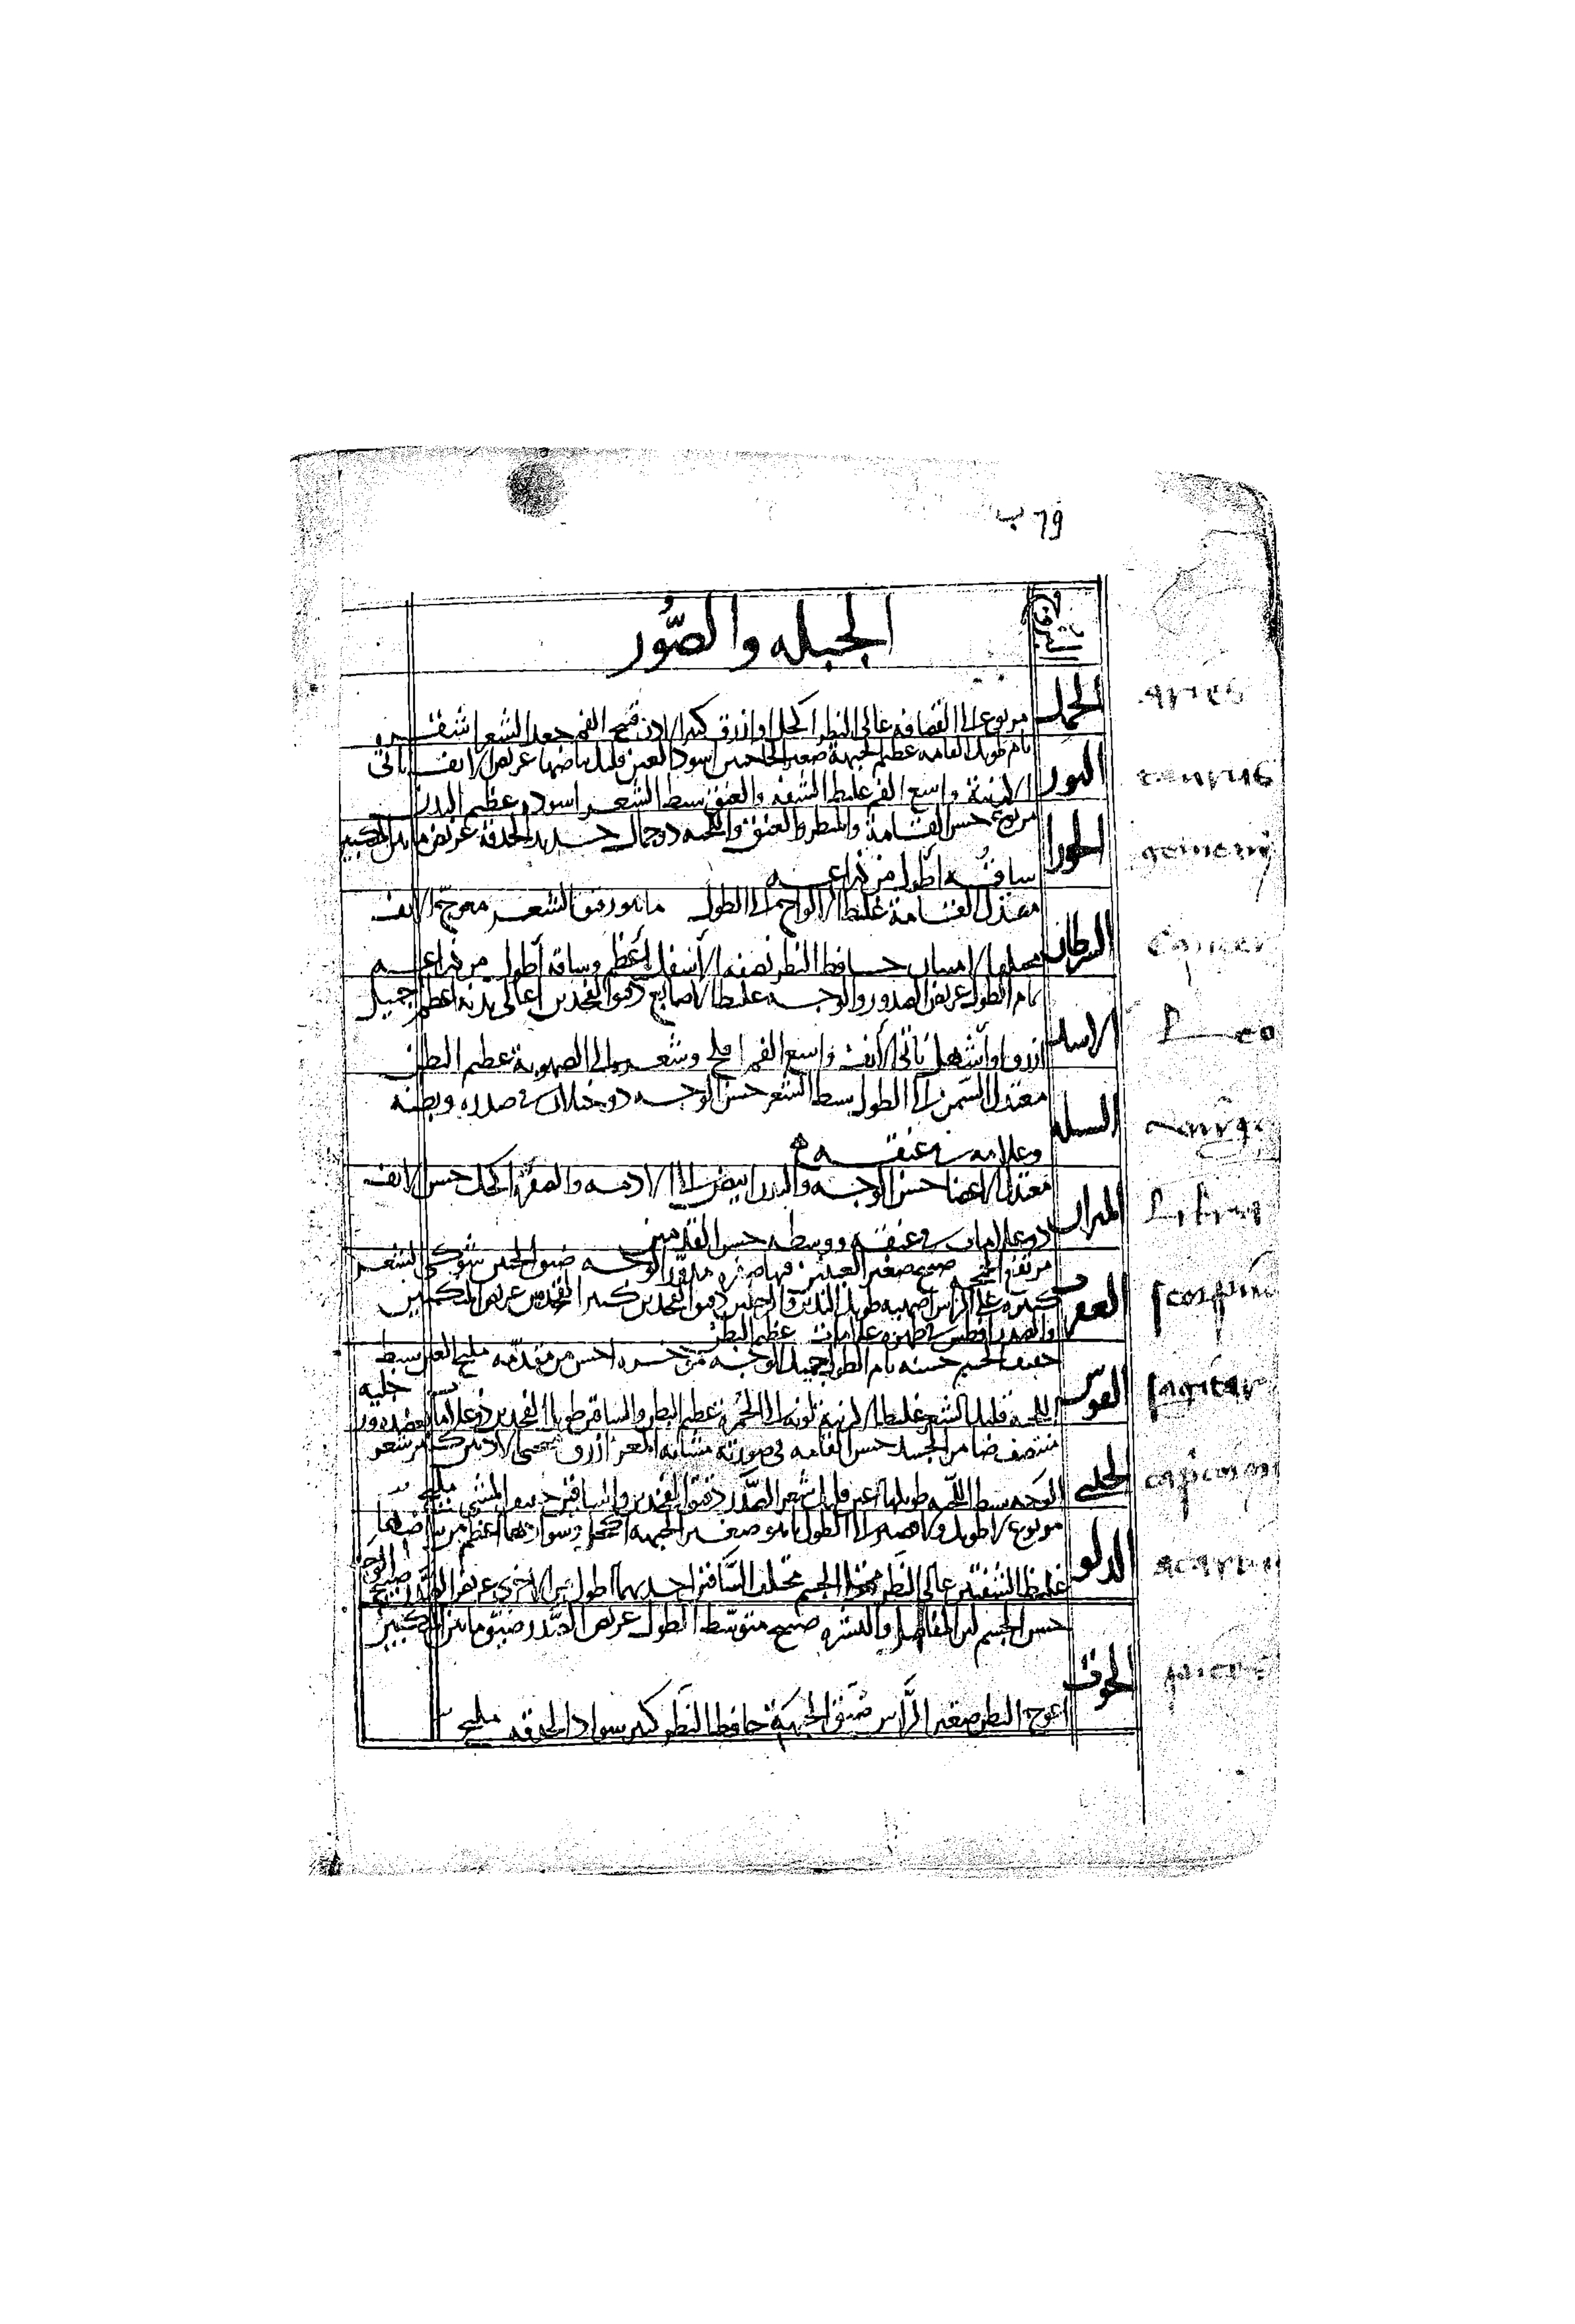 ٦٩ ب
البروج
الجبله والصُّور
الحمل
aries
مربوع الى القضافه عالى النظر اكحل او ازرق كبير الاذن قبيح الفم جعد الشعر اشقر
الثور
taurus
تام طويل القامه عظيم الجبهة صغير الحاجبين اسود العين قليل بياضها عريض الانف ناتى
الارنبة واسع الفم غليظ الشفه والعنق سبط الشعر اسوده عظيم البدن
الجوزا
gemeni
مربوع حسن القامة والمنظر والعنق واللحيه ذو جمال حديد الحدقة عريض ما بين المنكبين
ساقه اطول من ذراعه
السرطان
Cancer
معتدل القامة غليظ الالواح الى الطول دقيق الشعر معوج الانف
الاسنان حافظ النظر نصفه الاسفل اعظم وساقه اطول من ذراعه
الاسد
Leo
تام الطول عريض الصدر والوجه غليظ الاصابع دقيق الفخذين اعالى بدنه اعظم جميل
ازرق او اشهل ناتى الانف واسع الفم افلج وشعره الى الصهوبة عظيم البطن
السنبله
معتدل السمن الى الطول سبط الشعر حسن الوجه ذو خيلان فى صدره وبطنه
وعلامه فى عنقه
الميزان
Libra
معتدل الاعضا حسن الوجه والبدن ابيض الى الادمه والصفرة اكحل حسن الانف
ذو علامات فى عنقه ووسطه حسن القدمين
العقرب
scorpiu
مرتفع صبيح صغير العينين مدور الوجه ضيق الجبين شوكى الشعر
كثيره على الراس طويل اليدين والرجلين دقيق الفخذين كبير القدمين عريض المنكبين
والصدر افطس فى ظهره علامات عظيم البطن
القوس
sagitar
خفيف الجسم حسنه تام الطول جميل الوجه من احسن من مقدمه مليح العين سبط
اللحيه قليل الشعر غليظ الارنبة لونه الى الحمرة عظيم البطن والساقين طويل الفخذين ذو علامات
الجدى
capicorn
منتصف ضامر الجسد حسن القامه فى صورته مشابه المعز ازرق كثير شعر
الوجه سبط اللحيه طويلها قليل شعر الصدر دقيق الفخذين والساقين خفيف المشى مليح
الدلو
acarius
مربوع لا طويل ولا قصير الى الطول صغير الجبهه اكحل وسوادهما اعظم من بياضهما
غليظ الشفتين عالى النظر الجسم مختلف الساقين احديهما اطول من الاخرى عريض الصدر صبيح الوجه
الحوت
حسن الجسم لين المفاصل والبشره صبيح متوسط الطول عريض الصدر ضيق ما بين المنكبين
اعوج البطن صغير الرَّاس ضيق الجبهة حافظ النظر كبير سواد الحدقه مليح